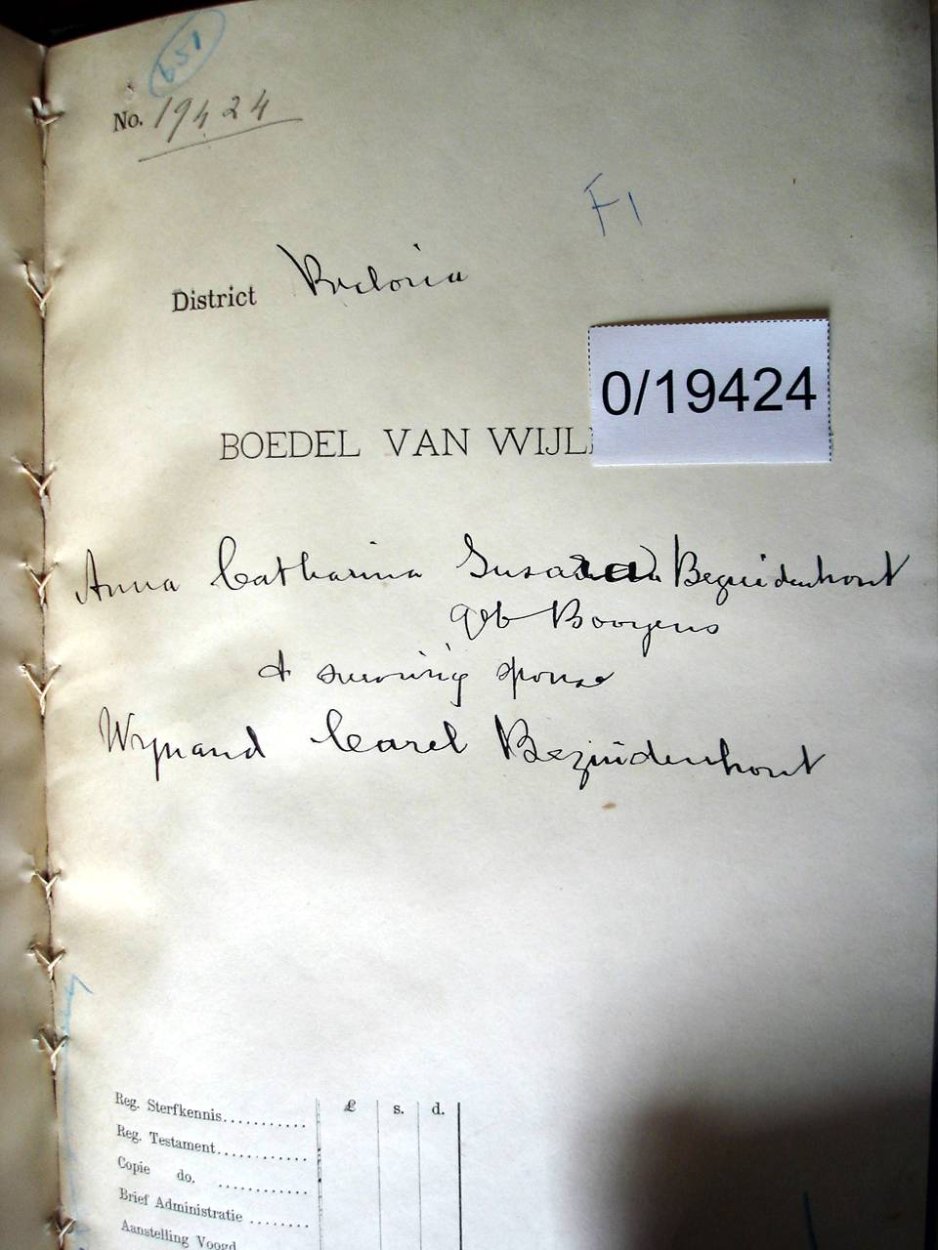 651
No. 19424
F1
District Pretoria
0/19424
BOEDEL VAN WIJL
Anna Catharina Susanna Bezuidenhout
geb Booyens
& surviving spouse
Wynand Carel Bezuidenhout
£ s. d.
Reg. Sterfkennis...........
Reg. Testament............
Copie do. ............
Brief Administratie ........
Aanstelling Voogd